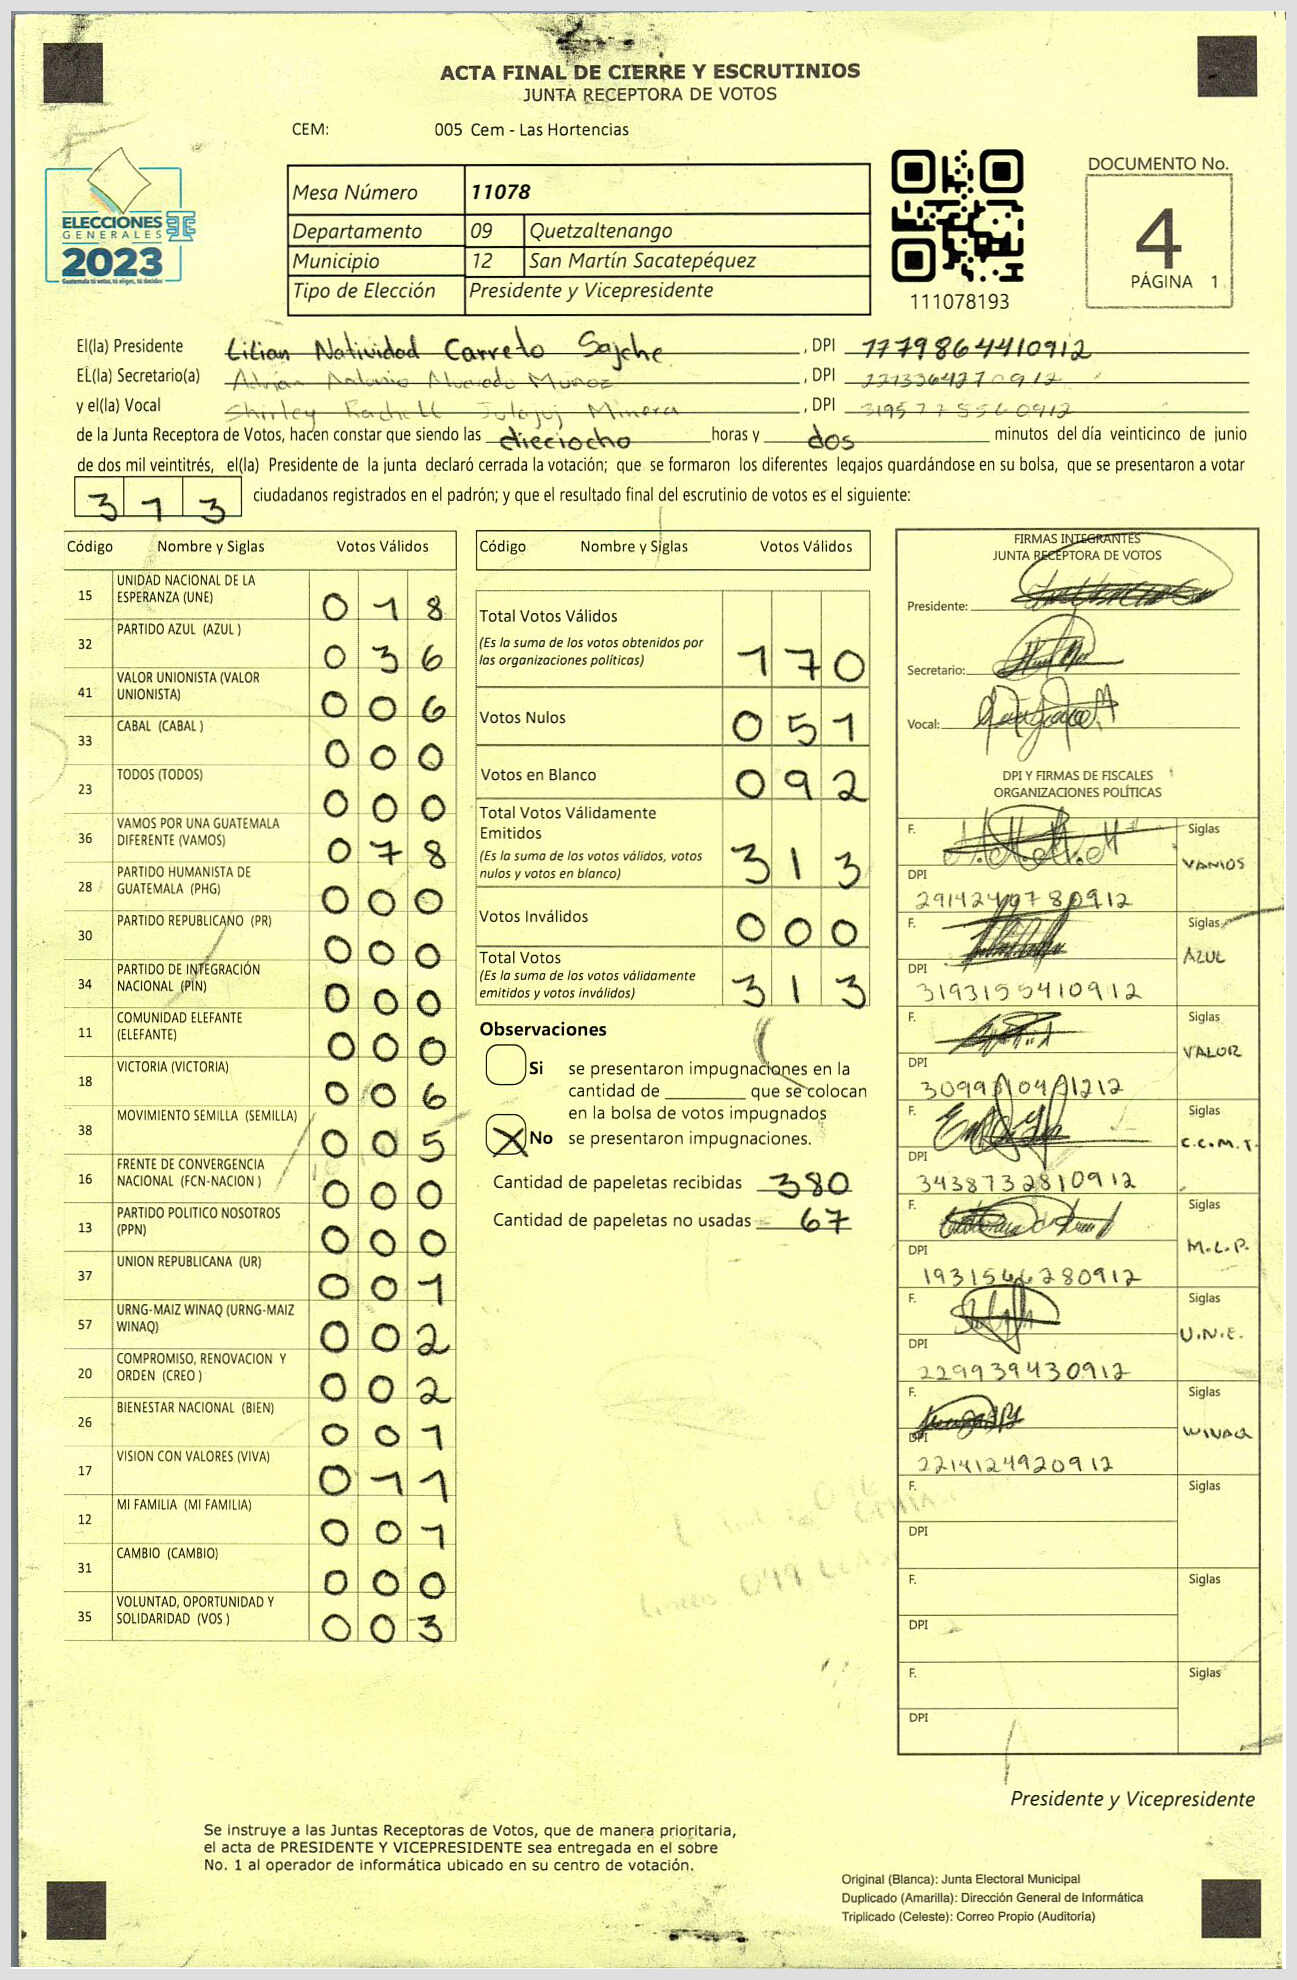 ACTA FINAL DE CIERRE Y ESCRUTINIOS
JUNTA RECEPTORA DE VOTOS
CEM: 005 Cem - Las Hortencias
ELECCIONES
GENERALES
2023
Guatemala tú votas, tú eliges, tú decides
Mesa Número 11078
Departamento 09 Quetzaltenango
Municipio 12 San Martín Sacatepéquez
Tipo de Elección Presidente y Vicepresidente
111078193
DOCUMENTO No.
4
PÁGINA 1
El(la) Presidente Lilian Natividad Carreto Sajche , DPI 1779864410912
El(la) Secretario(a) Adrian Antonio Alvarado Muñoz , DPI
y el(la) Vocal Shirley Rachell Julajuj Minera , DPI 3195778560912
de la Junta Receptora de Votos, hacen constar que siendo las dieciocho horas y dos minutos del día veinticinco de junio
de dos mil veintitrés, el(la) Presidente de la junta declaró cerrada la votación; que se formaron los diferentes legajos guardándose en su bolsa, que se presentaron a votar
313 ciudadanos registrados en el padrón; y que el resultado final del escrutinio de votos es el siguiente:
Código Nombre y Siglas Votos Válidos
15 UNIDAD NACIONAL DE LA ESPERANZA (UNE) 018
32 PARTIDO AZUL (AZUL ) 036
41 VALOR UNIONISTA (VALOR UNIONISTA) 006
33 CABAL (CABAL ) 000
23 TODOS (TODOS) 000
36 VAMOS POR UNA GUATEMALA DIFERENTE (VAMOS) 078
28 PARTIDO HUMANISTA DE GUATEMALA (PHG) 000
30 PARTIDO REPUBLICANO (PR) 000
34 PARTIDO DE INTEGRACIÓN NACIONAL (PIN) 000
11 COMUNIDAD ELEFANTE (ELEFANTE) 000
18 VICTORIA (VICTORIA) 006
38 MOVIMIENTO SEMILLA (SEMILLA) 005
16 FRENTE DE CONVERGENCIA NACIONAL (FCN-NACION ) 000
13 PARTIDO POLITICO NOSOTROS (PPN) 000
37 UNION REPUBLICANA (UR) 001
57 URNG-MAIZ WINAQ (URNG-MAIZ WINAQ) 002
20 COMPROMISO, RENOVACION Y ORDEN (CREO ) 002
26 BIENESTAR NACIONAL (BIEN) 001
17 VISION CON VALORES (VIVA) 011
12 MI FAMILIA (MI FAMILIA) 001
31 CAMBIO (CAMBIO) 000
35 VOLUNTAD, OPORTUNIDAD Y SOLIDARIDAD (VOS ) 003
Código Nombre y Siglas Votos Válidos
Total Votos Válidos 170
(Es la suma de los votos obtenidos por
las organizaciones políticas)
Votos Nulos 051
Votos en Blanco 092
Total Votos Válidamente
Emitidos 313
(Es la suma de los votos válidos, votos
nulos y votos en blanco)
Votos Inválidos 000
Total Votos 313
(Es la suma de los votos válidamente
emitidos y votos inválidos)
Observaciones
Si se presentaron impugnaciones en la
cantidad de ________ que se colocan
en la bolsa de votos impugnados
No se presentaron impugnaciones.
Cantidad de papeletas recibidas 380
Cantidad de papeletas no usadas 67
FIRMAS INTEGRANTES
JUNTA RECEPTORA DE VOTOS
Presidente:
Secretario:
Vocal:
DPI Y FIRMAS DE FISCALES
ORGANIZACIONES POLÍTICAS
F. Siglas VAMOS
DPI 2914240780912
F. Siglas AZUL
DPI 3193155410912
F. Siglas VALOR
DPI
F. Siglas C.C.M.T.
DPI 3438732810912
F. Siglas M.L.P.
DPI 1931566280912
F. Siglas U.N.E.
DPI 229939430912
F. Siglas WINAQ
DPI 2214124920912
F. Siglas
DPI
F. Siglas
DPI
F. Siglas
DPI
Presidente y Vicepresidente
Se instruye a las Juntas Receptoras de Votos, que de manera prioritaria,
el acta de PRESIDENTE Y VICEPRESIDENTE sea entregada en el sobre
No. 1 al operador de informática ubicado en su centro de votación.
Original (Blanca): Junta Electoral Municipal
Duplicado (Amarilla): Dirección General de Informática
Triplicado (Celeste): Correo Propio (Auditoría)